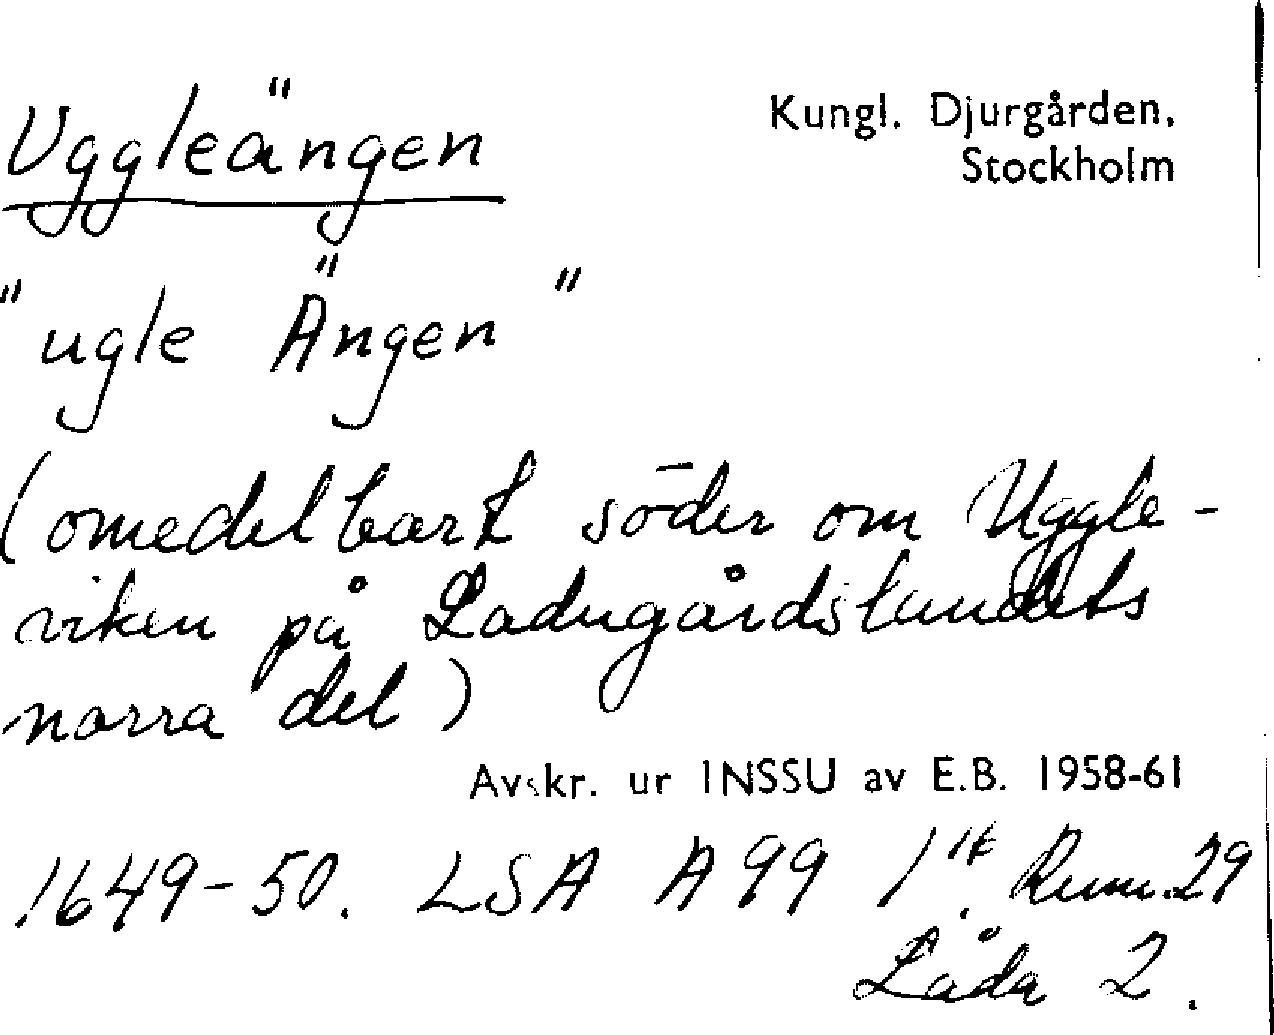 Uggleängen
Kungl. Djurgården,
Stockholm
"ugle Ängen"
(omedelbart söder om Uggle-
viken på Ladugårdslandets
norra del)
Avskr. ur INSSU av E.B. 1958-61
1649-50. LSA A 99 1:a Rum. 29
Låda 2.